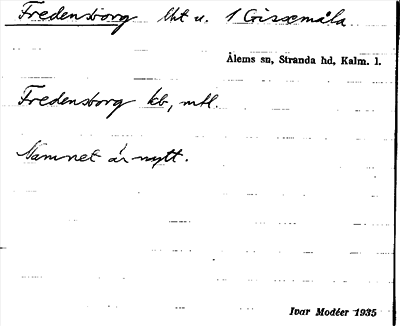 Fredensborg lht u. 1 Grissemåla
Ålems sn, Stranda hd, Kalm. l.
Fredensborg kb, mtl.
Namnet är nytt.
Ivar Modéer 1935